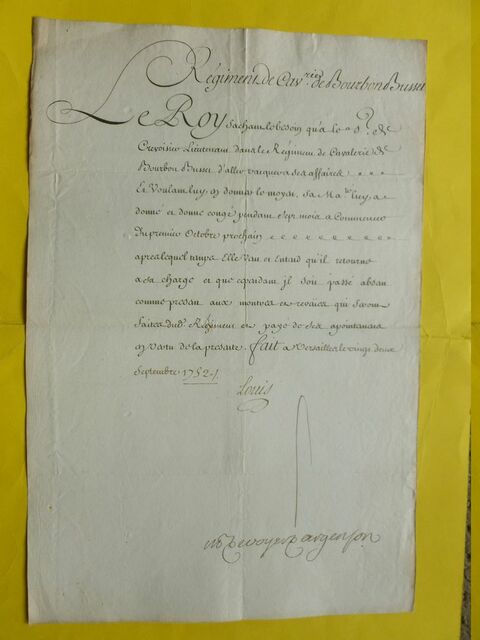 Régiment de Cav.rie de Bourbon Busset
Le Roy Sachant le besoin qu'a le S.r de
Crevoisier Lieutenant dans le Régiment de Cavalerie de
Bourbon Busset d'aller vacquer a ses affaires
Et Voulant luy en donner le moyen. Sa Ma.té luy a
donné et donne congé pendant Sept mois a Commencer
Du premier Octobre prochain
apres lequel temps Elle Veut et Entend qu'il retourne
a sa charge et que cependant il soit passé absent
comme present aux montres et reveües qui seront
faites dud. Régiment et payé de ses apointemens
en vertu de la presente. Fait a Versailles le vingt deux
Septembre 1752 ./.
Louis
M P de voyer d'argenson